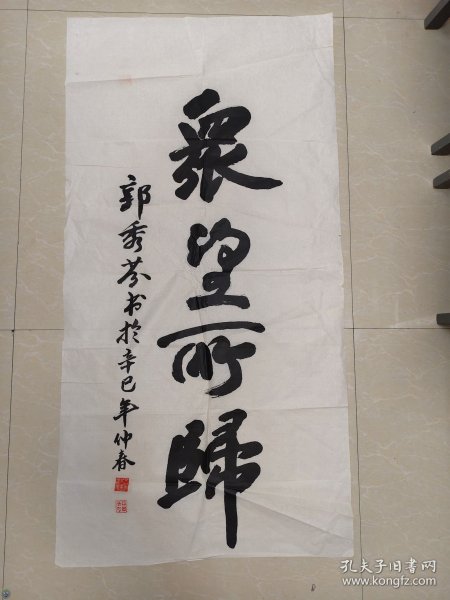 眾望所歸
郭秀芬书於辛巳年仲春
孔夫子旧书网
www.kongfz.com